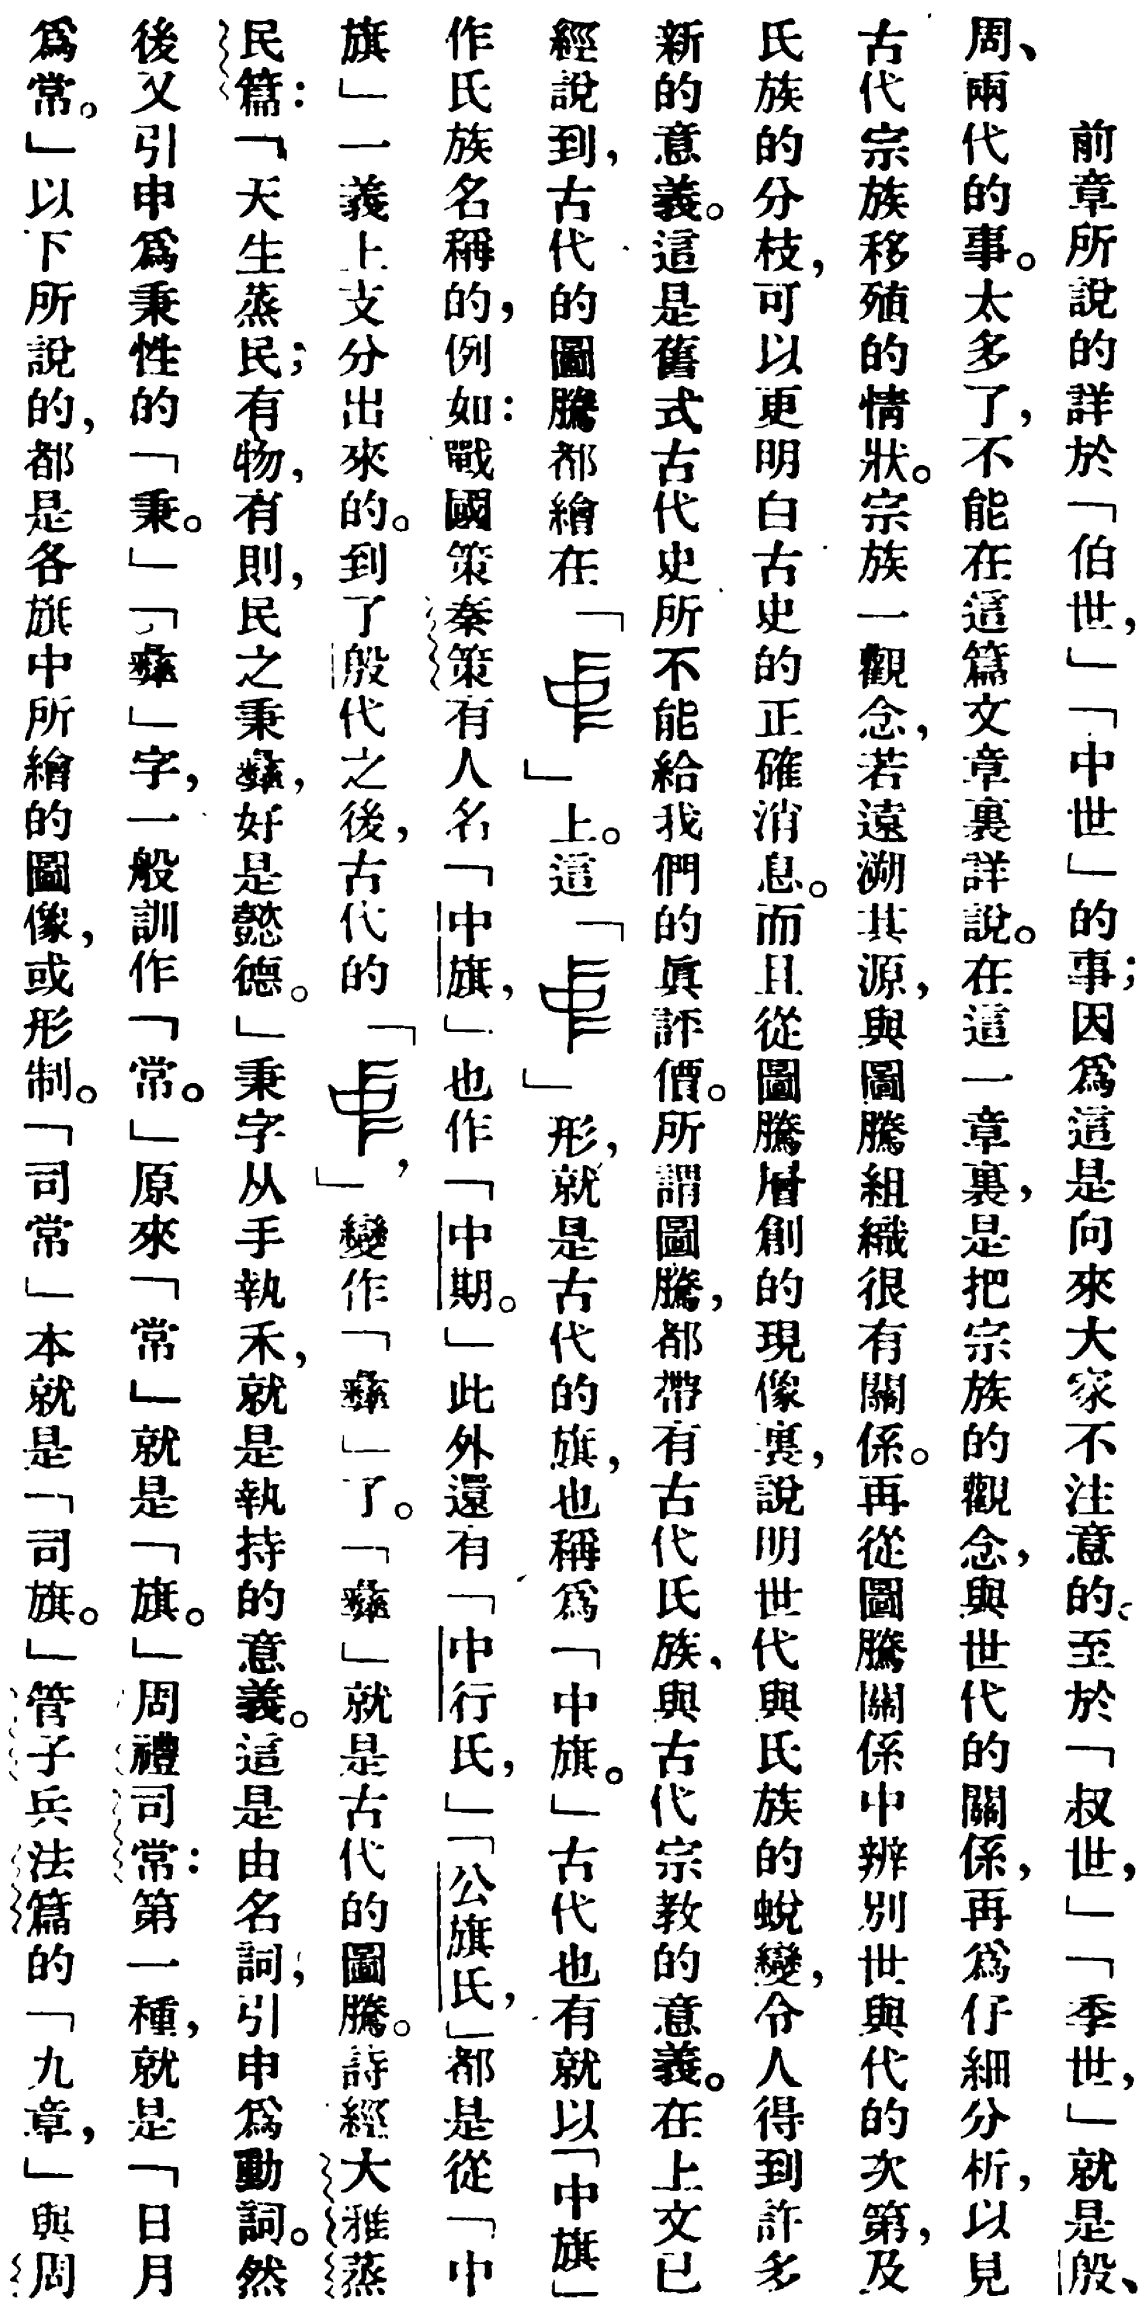 前章所說的詳於「伯世，」「中世」的事；因爲這是向來大家不注意的。至於「叔世，」「季世，」就是殷、
周、兩代的事。太多了，不能在這篇文章裏詳說。在這一章裏，是把宗族的觀念，與世代的關係，再爲仔細分析，以見
古代宗族移殖的情狀。宗族一觀念，若遠溯其源，與圖騰組織很有關係。再從圖騰關係中辨別世與代的次第，及
氏族的分枝，可以更明白古史的正確消息。而且從圖騰層創的現像裏，說明世代與氏族的蛻變，令人得到許多
新的意義。這是舊式古代史所不能給我們的眞評價。所謂圖騰，都帶有古代氏族、與古代宗教的意義。在上文已
經說到，古代的圖騰都繪在「」上。這「」形，就是古代的旗，也稱爲「中旗。」古代也有就以「中旗」
作氏族名稱的，例如：戰國策秦策有人名「中旗，」也作「中期。」此外還有「中行氏，」「公旗氏，」都是從「中
旗」一義上支分出來的。到了殷代之後，古代的「，」變作「彝」了。「彝」就是古代的圖騰。詩經大雅蒸
民篇：「天生蒸民；有物，有則，民之秉彝，好是懿德。」秉字从手執禾，就是執持的意義。這是由名詞；引申爲動詞。然
後又引申爲秉性的「秉。」「彝」字，一般訓作「常。」原來「常」就是「旗。」周禮司常：第一種，就是「日月
爲常。」以下所說的，都是各旗中所繪的圖像，或形制。「司常」本就是「司旗。」管子兵法篇的「九章，」與周